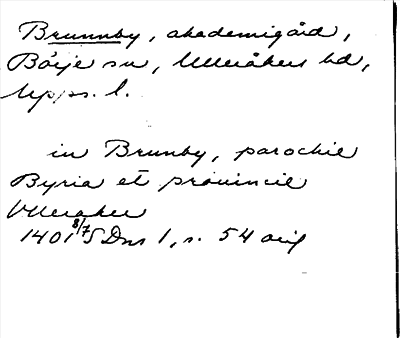 Brunnby, akademigård,
Börje sn, Ulleråkers hd,
Upps. l.
in Brunby, parochie
Byria et prouincie
Vlleraker
1401 8/7 SDns 1, s. 54 avf